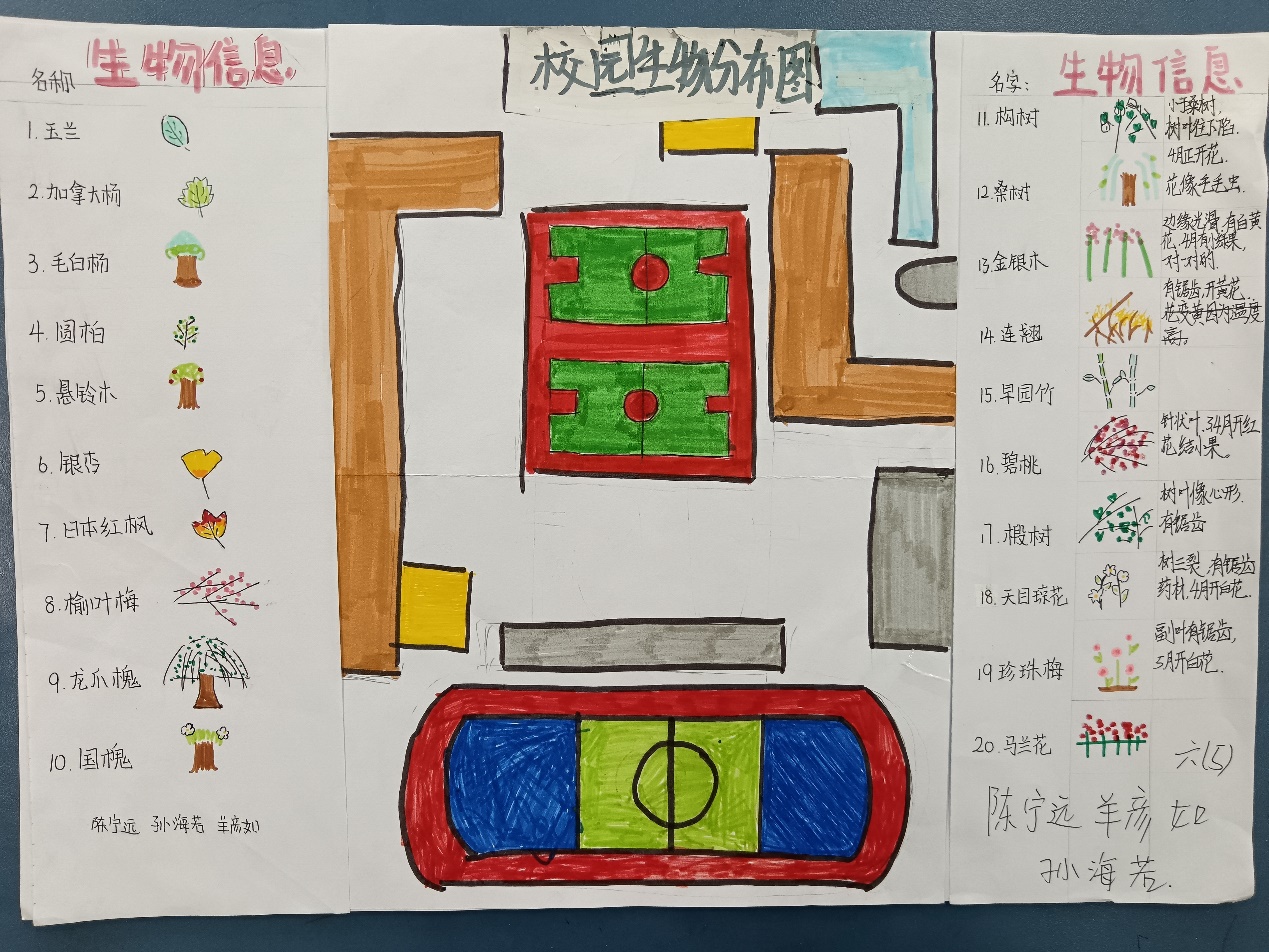 生物信息
名称:
1.玉兰
2.加拿大杨
3.毛白杨
4.圆柏
5.悬铃木
6.银杏
7.日本红枫
8.榆叶梅
9.龙爪槐
10.国槐
陈宁远 孙海若 羊彦如
校园生物分布图
生物信息
名字:
11.构树
树叶往下陷.
12.桑树
4月正开花.
花像毛毛虫.
13.金银木
边缘光滑.有白黄
花.4月有小绿果,
一对一对的.
14.连翘
有锯齿,开黄花.
花变黄因为温度
高。
15.早园竹
16.碧桃
针状叶.34月开红
花.结小果。
17.椴树
树叶像心形.
有锯齿
18.天目琼花
树三裂,有锯齿
药材,4月开白花.
19珍珠梅
副叶有锯齿,
5月开白花.
20.马兰花
六(5)
陈宁远 羊彦如
孙海若.